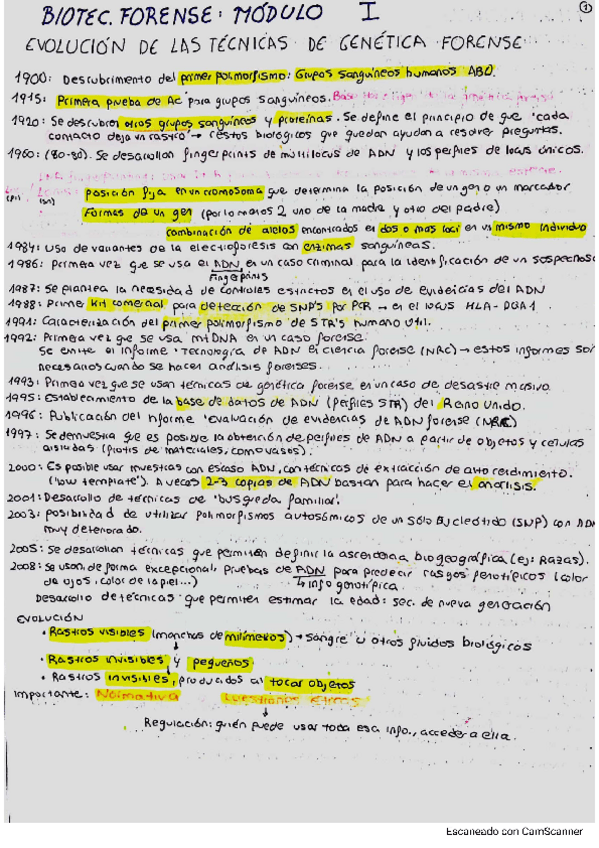 BIOTEC. FORENSE: MÓDULO I
1
EVOLUCIÓN DE LAS TÉCNICAS DE GENÉTICA FORENSE
1900: Descubrimiento del primer polimorfismo: Grupos sanguíneos humanos ABO.
1915: Primera prueba de Ac para grupos sanguíneos.
1920: Se descubren otros grupos sanguíneos y proteínas. Se define el principio de que "cada
contacto deja un rastro" → restos biológicos que quedan ayudan a resolver preguntas.
1960: (80-90). Se desarrollan fingerprints de multilocus de ADN y los perfiles de locus únicos.
posición fija en un cromosoma que determina la posición de un gen o un marcador.
Formas de un gen (por lo menos 2, uno de la madre y otro del padre)
combinación de alelos encontrados en dos o mas loci en un mismo individuo
1984: Uso de variantes de la electroforesis con enzimas sanguíneas.
1986: Primera vez que se usa el ADN en un caso criminal para la identificación de un sospechoso
Fingerprints
1987: Se plantea la necesidad de controles estrictos en el uso de evidencias del ADN
1988: Primer kit comercial para detección de SNP's por PCR → en el locus HLA-DQA1
1991: Caracterización del primer polimorfismo de STR's humano útil.
1992: Primera vez que se usa mtDNA en un caso forense
Se emite el informe "Tecnología de ADN en ciencia forense (NRC) → estos informes son
necesarios cuando se hacen análisis forenses.
1993: Primera vez que se usan técnicas de genética forense en un caso de desastre masivo.
1995: Establecimiento de la base de datos de ADN (perfiles STR) del Reino Unido.
1996: Publicación del informe "Evaluación de evidencias de ADN forense (NRC)
1997: Se demuestra que es posible la obtención de perfiles de ADN a partir de objetos y células
aisladas (frotis de materiales, como vasos).
2000: Es posible usar muestras con escaso ADN, con técnicas de extracción de alto rendimiento.
("low template"). A veces 2-3 copias de ADN bastan para hacer el análisis.
2001: Desarrollo de técnicas de "búsqueda familiar".
2003: posibilidad de utilizar polimorfismos autosómicos de un sólo nucleótido (SNP) con ADN
muy deteriorado.
2005: Se desarrollan técnicas que permiten definir la ascendencia biogeográfica (ej: Razas).
2008: Se usan, de forma excepcional, pruebas de ADN para predecir rasgos fenotípicos (color
de ojos, color de la piel...)
↳ info genotípica
Desarrollo de técnicas que permiten estimar la edad: sec. de nueva generación
EVOLUCIÓN
• Rastros visibles (manchas de milímetros) → sangre u otros fluidos biológicos
• Rastros invisibles y pequeños
• Rastros invisibles, producidos al tocar objetos
Importante: Normativa Cuestiones éticas
Regulación: quién puede usar toda esa info., acceder a ella.
Escaneado con CamScanner